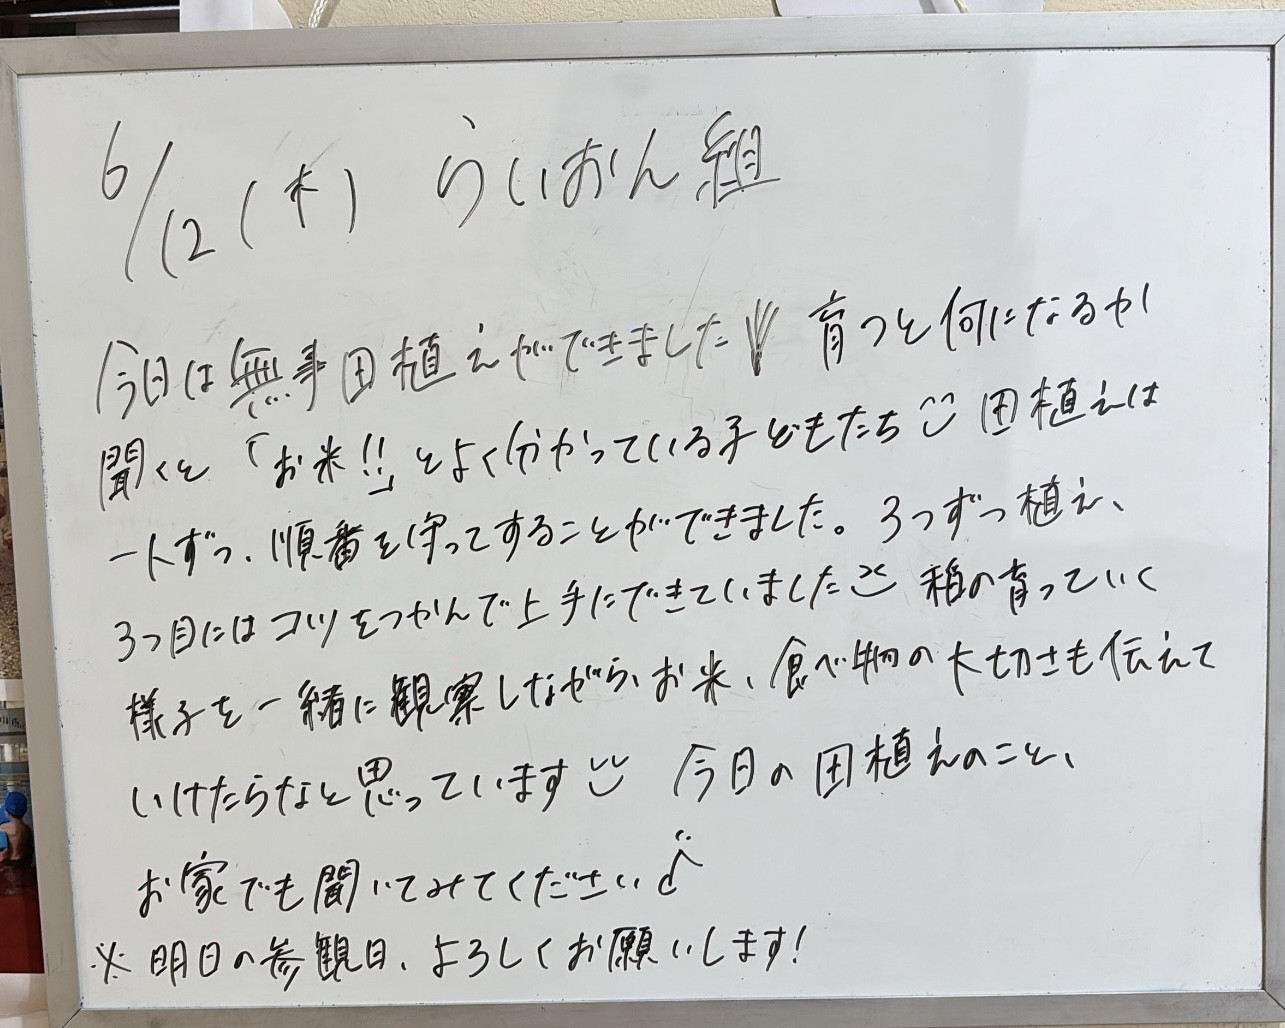 6/12(木) らいおん組
今日は無事田植えができました 育つと何になるか
聞くと「お米!!」とよく分かっている子どもたち 田植えは
一人ずつ、順番を守ってすることができました。3つずつ植え、
3つ目にはコツをつかんで上手にできていました 稲の育っていく
様子を一緒に観察しながら、お米、食べ物の大切さも伝えて
いけたらなと思っています 今日の田植えのこと、
お家でも聞いてみてください♪
※明日の参観日、よろしくお願いします!